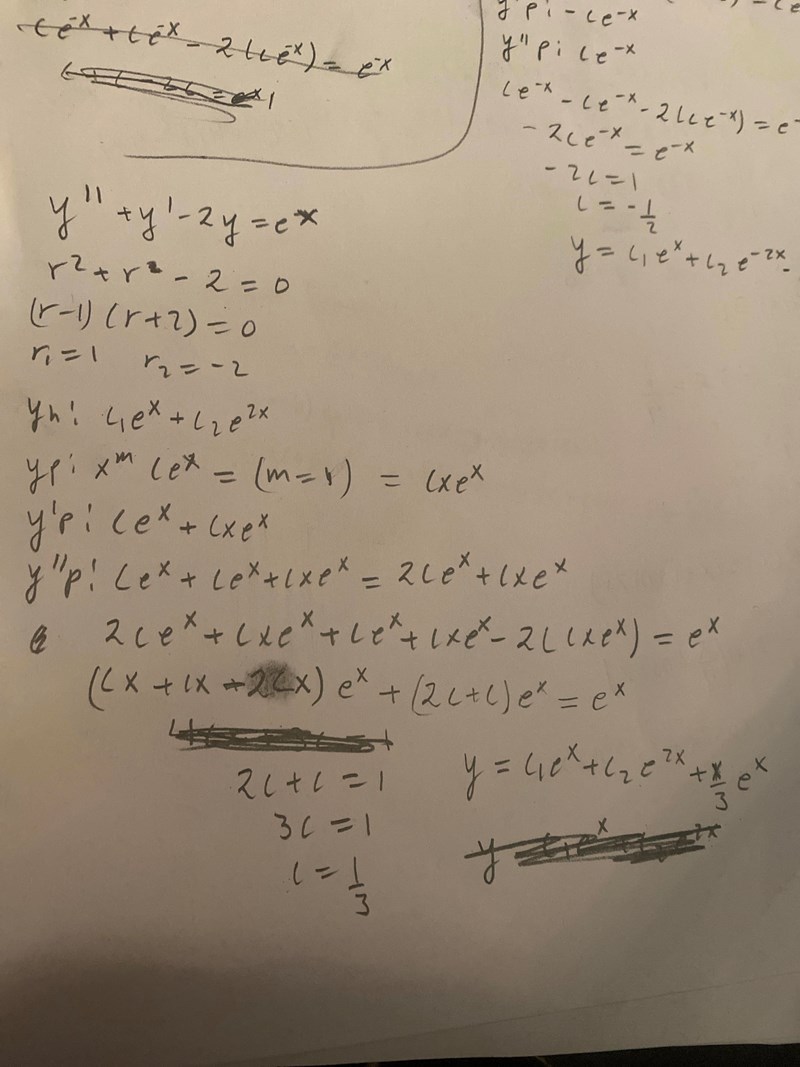 Ce^-x + Ce^-x - 2(Ce^-x) = e^-x
y'p: -Ce^-x
y"p: Ce^-x
Ce^-x - Ce^-x - 2(Ce^-x) = e^-
-2Ce^-x = e^-x
-2C = 1
C = -1/2
y = C₁e^x + C₂e^-2x -
y" + y' - 2y = e^x
r² + r - 2 = 0
(r-1)(r+2) = 0
r₁ = 1 r₂ = -2
yh: C₁e^x + C₂e^2x
yp: x^m Ce^x = (m=1) = Cxe^x
y'p: Ce^x + Cxe^x
y"p: Ce^x + Ce^x + Cxe^x = 2Ce^x + Cxe^x
2Ce^x + Cxe^x + Ce^x + Cxe^x - 2(Cxe^x) = e^x
(Cx + Cx - 2Cx)e^x + (2C+C)e^x = e^x
2C + C = 1
3C = 1
C = 1/3
y = C₁e^x + C₂e^2x + x/3 e^x